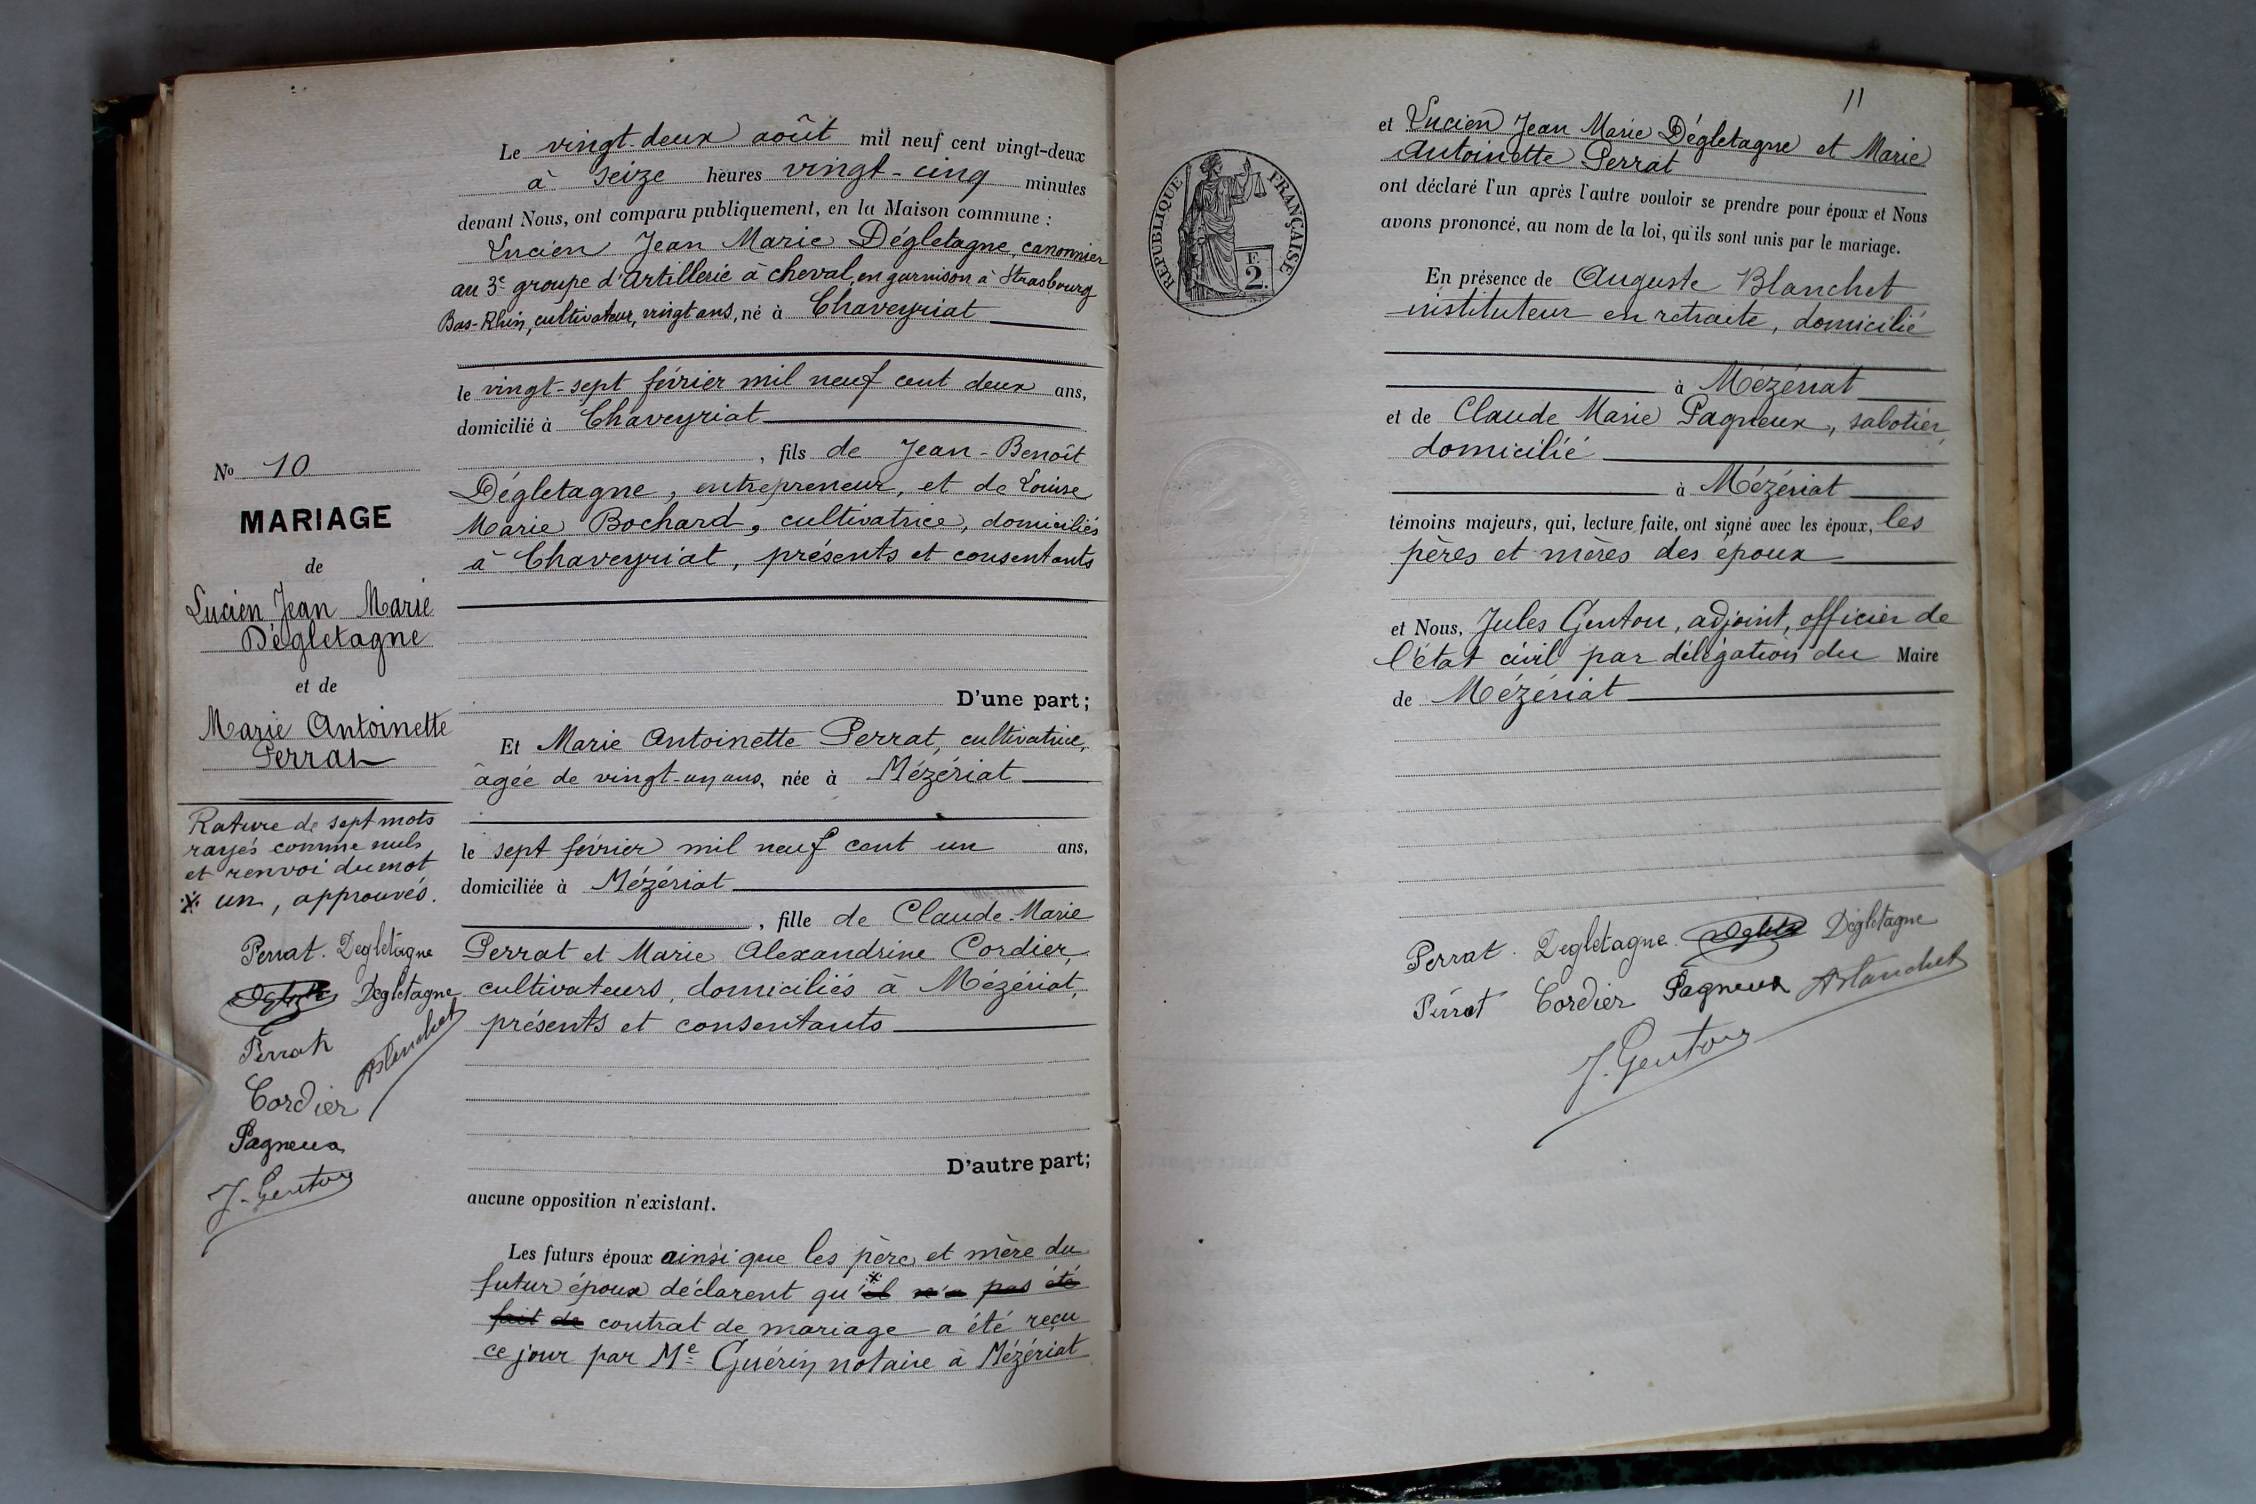 N° 10
MARIAGE
de
Lucien Jean Marie
Dégletagne
et de
Marie Antoinette
Perrat
Rature de sept mots
rayés comme nuls
et renvoi du mot
* un, approuvés.
Perrat. Degletagne
Degletagne
Perrat
Ablanchet
Cordier
Pagneux
J. Genton
Le vingt-deux août mil neuf cent vingt-deux
à seize heures vingt-cinq minutes
devant Nous, ont comparu publiquement, en la Maison commune :
Lucien Jean Marie Dégletagne, canonnier
au 3e groupe d'Artillerie à cheval, en garnison à Strasbourg
Bas-Rhin, cultivateur, vingt ans, né à Chaveyriat
le vingt-sept février mil neuf cent deux ans,
domicilié à Chaveyriat
, fils de Jean-Benoît
Dégletagne, entrepreneur, et de Louise
Marie Bochard, cultivatrice, domiciliés
à Chaveyriat, présents et consentants
D'une part ;
Et Marie Antoinette Perrat, cultivatrice,
âgée de vingt-un ans, née à Mézériat
le sept février mil neuf cent un ans,
domiciliée à Mézériat
, fille de Claude-Marie
Perrat et Marie Alexandrine Cordier,
cultivateurs, domiciliés à Mézériat,
présents et consentants
D'autre part ;
aucune opposition n'existant.
Les futurs époux ainsi que les père et mère du
futur époux déclarent qu'*il n'a pas été
fait de contrat de mariage a été reçu
ce jour par Me Guérin notaire à Mézériat
11
RÉPUBLIQUE FRANÇAISE
F.
2.
et Lucien Jean Marie Dégletagne et Marie
Antoinette Perrat
ont déclaré l'un après l'autre vouloir se prendre pour époux et Nous
avons prononcé, au nom de la loi, qu'ils sont unis par le mariage.
En présence de Auguste Blanchet
instituteur en retraite, domicilié
à Mézériat
et de Claude Marie Pagneux, sabotier,
domicilié
à Mézériat
témoins majeurs, qui, lecture faite, ont signé avec les époux, les
pères et mères des époux
et Nous, Jules Genton, adjoint, officier de
l'état civil par délégation du Maire
de Mézériat
Perrat. Degletagne Dégletagne
Perrat Cordier Pagneux Ablanchet
J. Genton